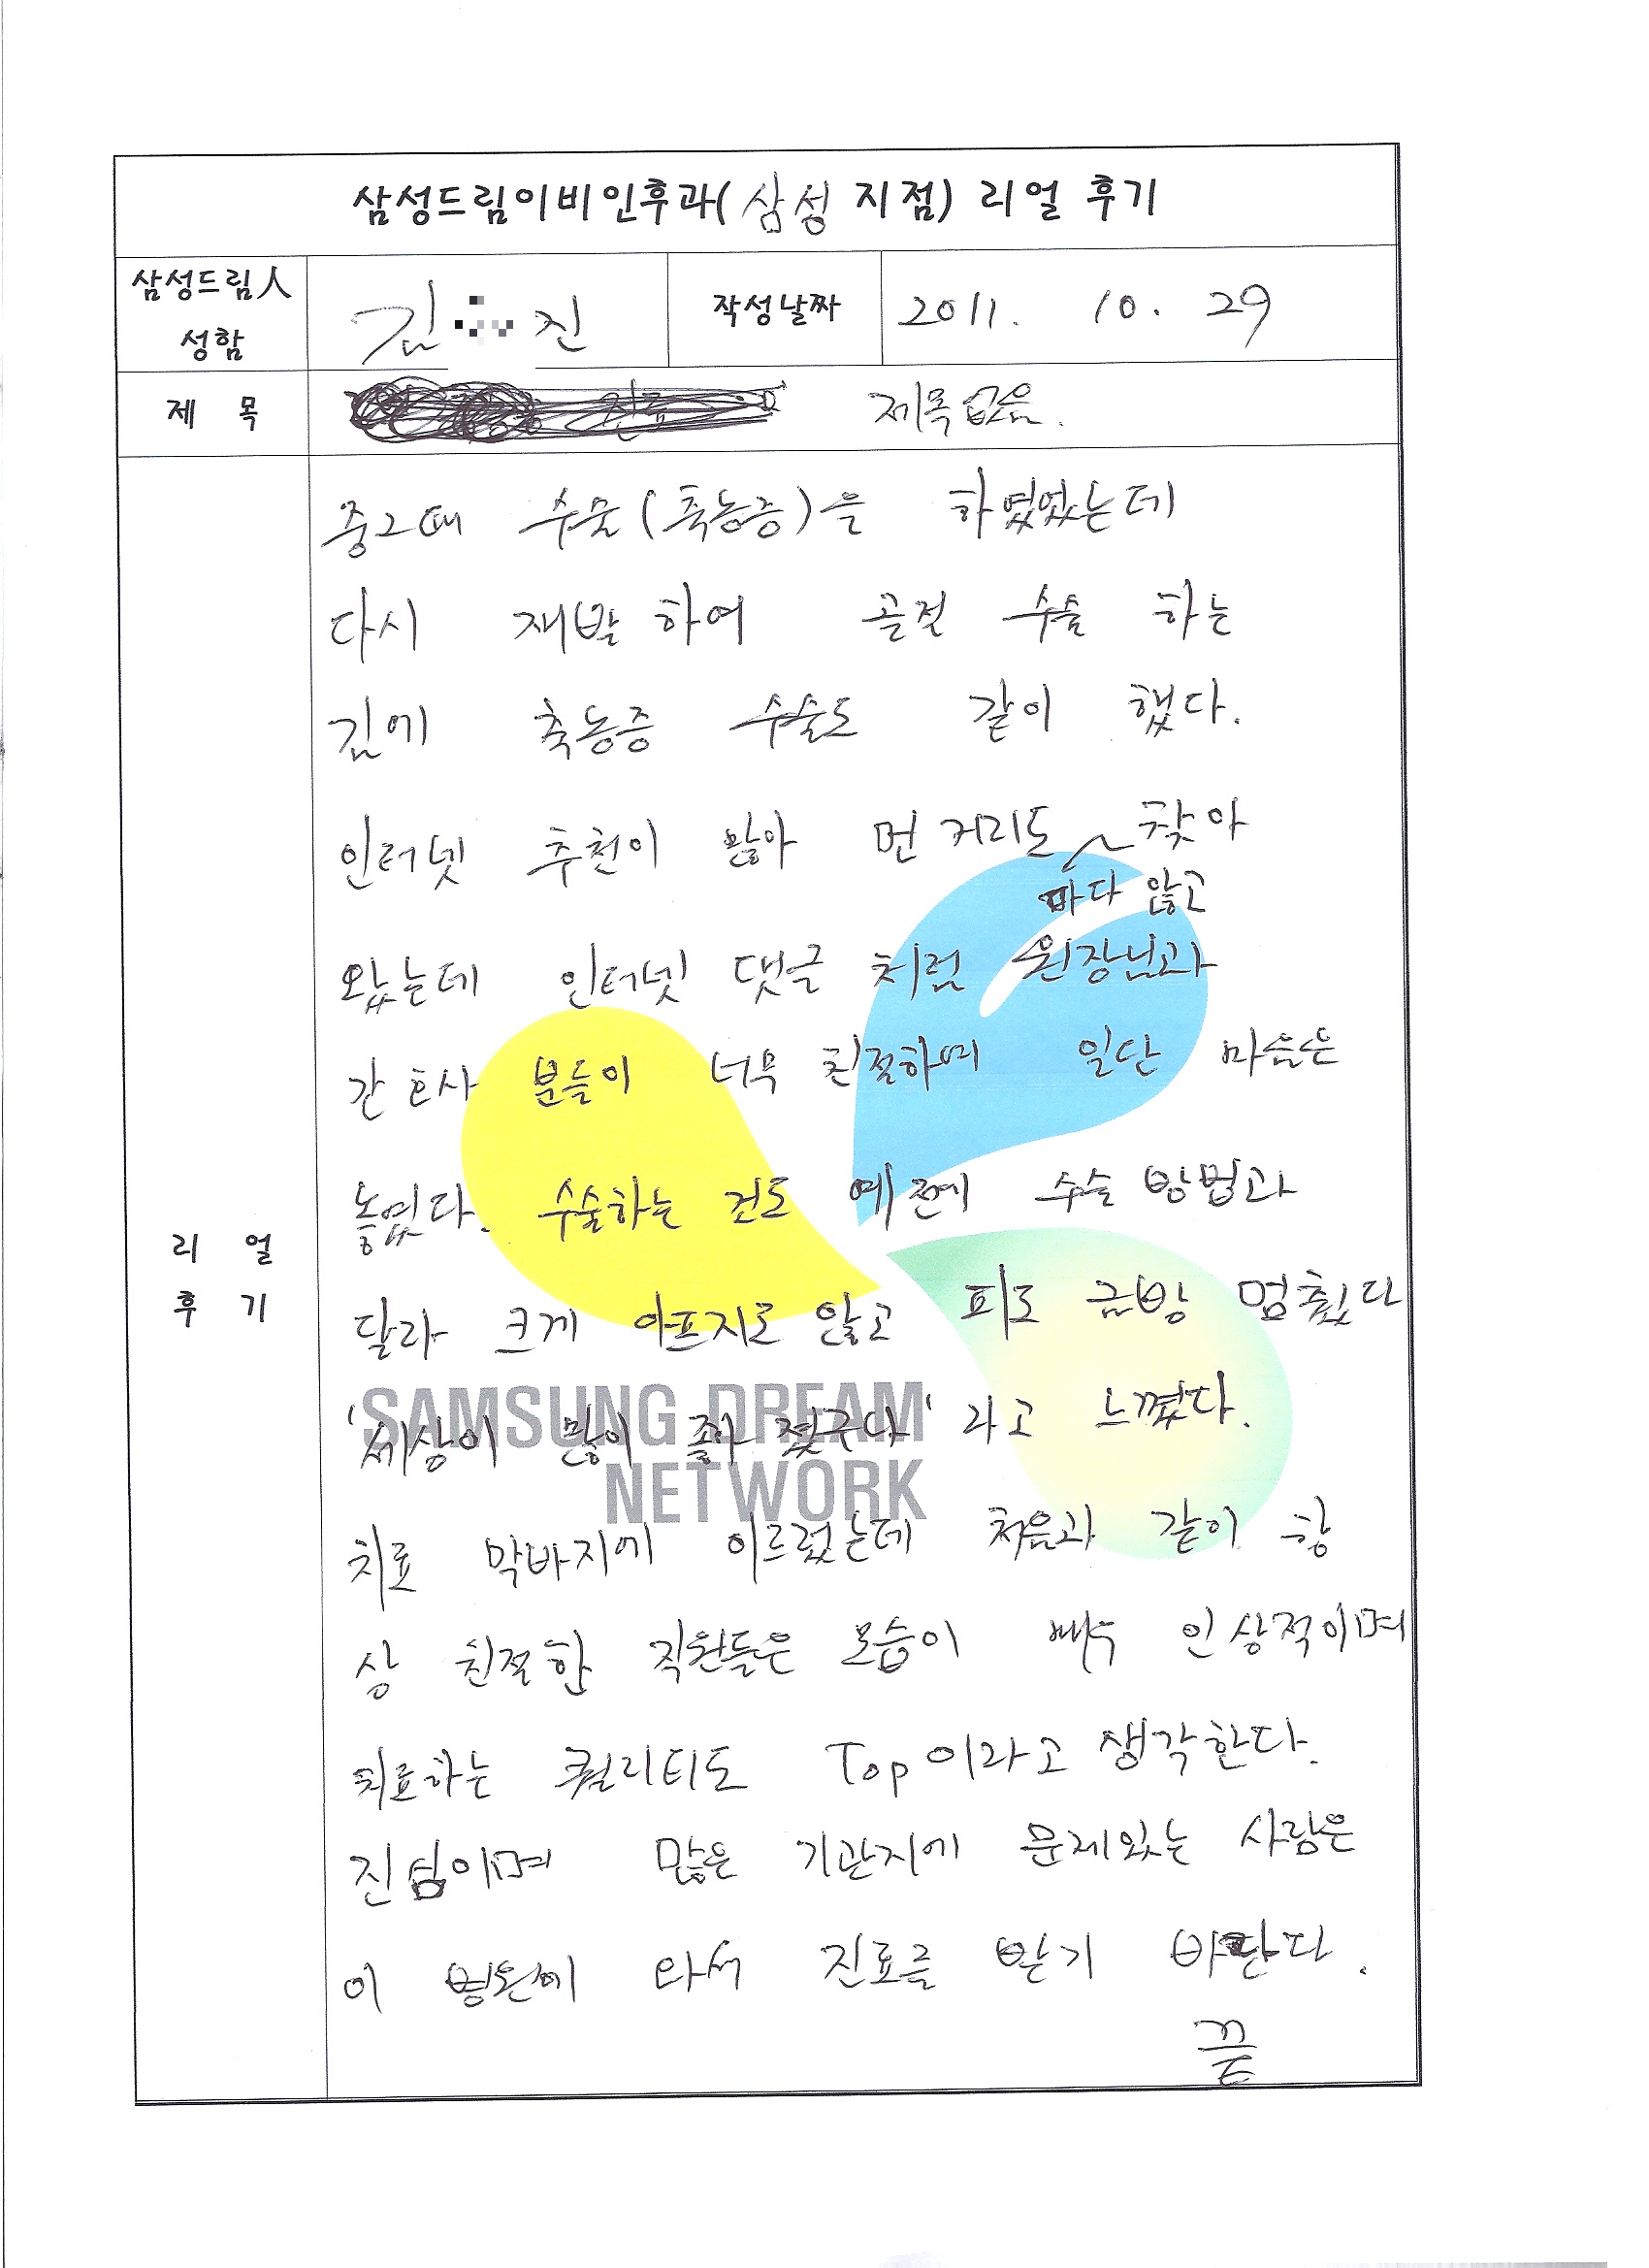 삼성드림이비인후과(삼성 지점) 리얼 후기
삼성드림人 성함 김 진 작성날짜 2011. 10. 29
제 목 제목없음.
중2때 수술(축농증)을 하였었는데
다시 재발하여 골절 수술 하는
김에 축농증 수술도 같이 했다.
인터넷 추천이 많아 먼 거리도 찾아
마다 않고
왔는데 인터넷 댓글 처럼 원장님과
간호사 분들이 너무 친절하며 일단 마음은
놓였다. 수술하는 건도 예전에 수술 방법과
리 얼
후 기
달라 크게 아프지로 않고 피도 금방 멈췄다
'세상이 많이 좋아 졌구나' 라고 느꼈다.
SAMSUNG DREAM
NETWORK
치료 막바지에 이르렀는데 처음과 같이 항
상 친절한 직원들은 모습이 매우 인상적이며
치료하는 퀄리티도 Top이라고 생각한다.
진심이며 많은 기관지에 문제있는 사람은
이 병원에 와서 진료를 받기 바란다.
끝